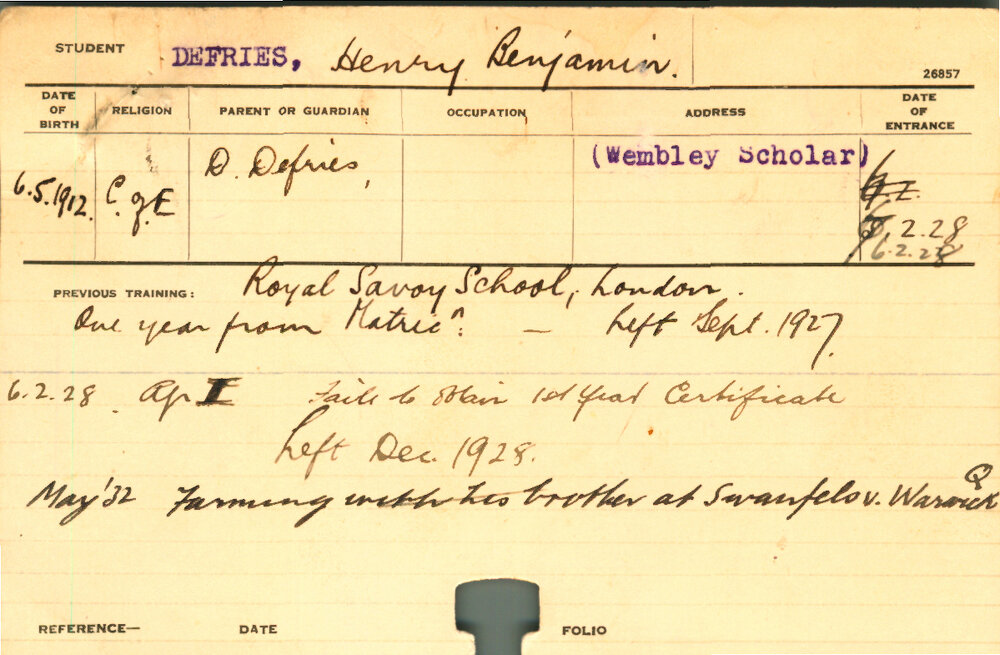 STUDENT DEFRIES, Henry Benjamin.
26857
DATE OF BIRTH RELIGION PARENT OR GUARDIAN OCCUPATION ADDRESS DATE OF ENTRANCE
6.5.1912. C. of E D. Defries, (Wembley Scholar)
6.2.28
6.2.28
PREVIOUS TRAINING: Royal Savoy School, London.
One year from Matricn. — Left Sept. 1927.
6.2.28 Ag I Fails to obtain 1st Year Certificate
Left Dec. 1928.
May '32 Farming with his brother at Swanfels v. Warwick Q
REFERENCE— DATE FOLIO